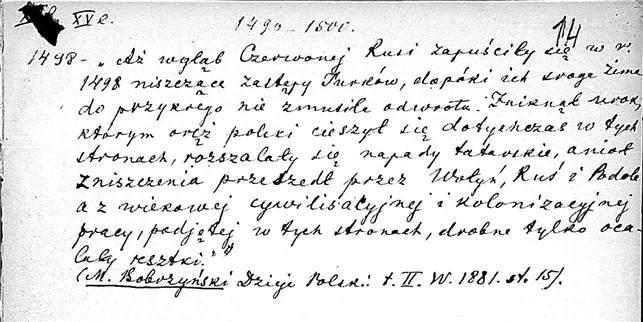 XVI. XVw. 1490-1500. 14
1498 - „Aż wgłąb Czerwonej Rusi zapuściły się w r.
1498 niszczące zastępy Turków, dopóki ich sroga zima
do przykrego nie zmusiła odwrotu. Zniknął urok,
którym oręż polski cieszył się dotychczas w tych
stronach, rozszalały się napady tatarskie, anioł
zniszczenia przeszedł przez Wołyń, Ruś i Podole
a z wiekowej cywilisacyjnej i kolonizacyjnej
pracy, podjętej w tych stronach, drobne tylko oca-
lały resztki."
(M. Bobrzyński Dzieje Polski: t. II. W. 1881. st. 15).